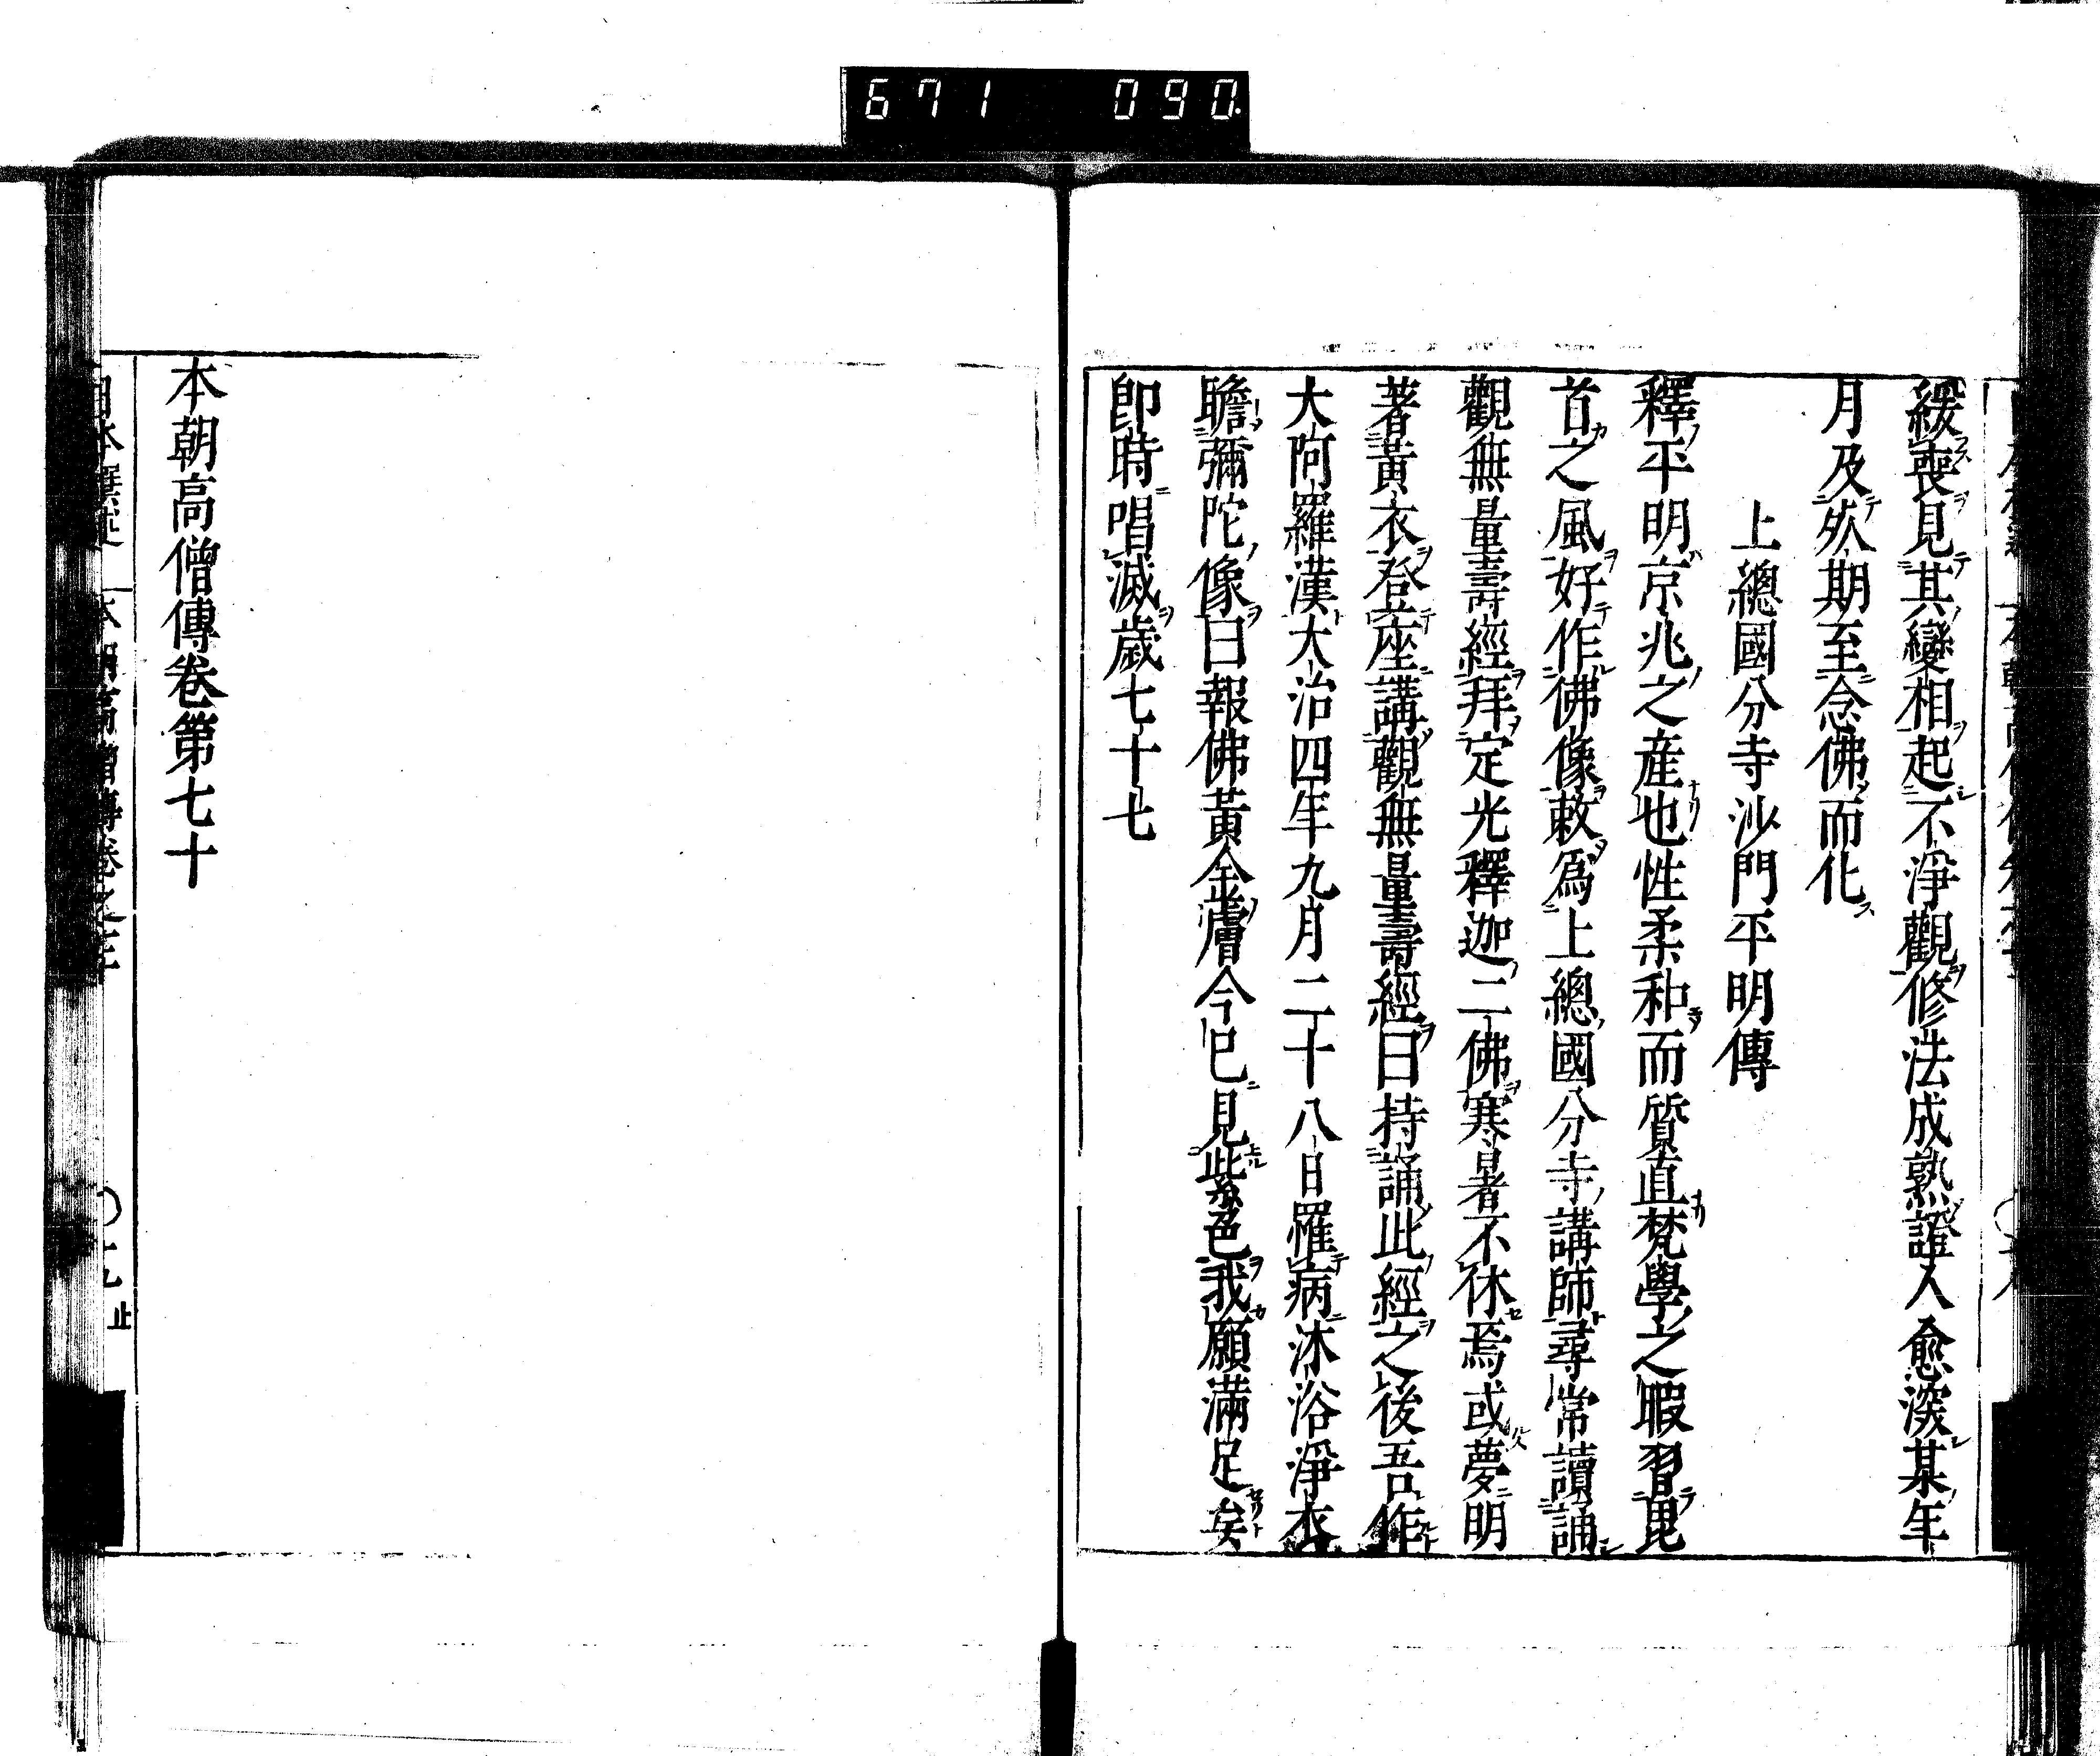 671 090
緩喪見其變相起不淨觀修法成熟證入愈深某年
月及死期至念佛而化
上總國分寺沙門平明傳
釋平明京兆之產也性柔和而質直梵學之暇習毘
首之風好作佛像敕爲上總國分寺講師尋常讀誦
觀無量壽經拜定光釋迦二佛寒暑不休焉或夢明
著黃衣登座講觀無量壽經曰持誦此經之後吾作
大阿羅漢大治四年九月二十八日罹病沐浴淨衣
瞻彌陀像曰報佛黃金膚今已見紫色我願滿足矣
卽時唱滅歲七十七
本朝高僧傳卷第七十